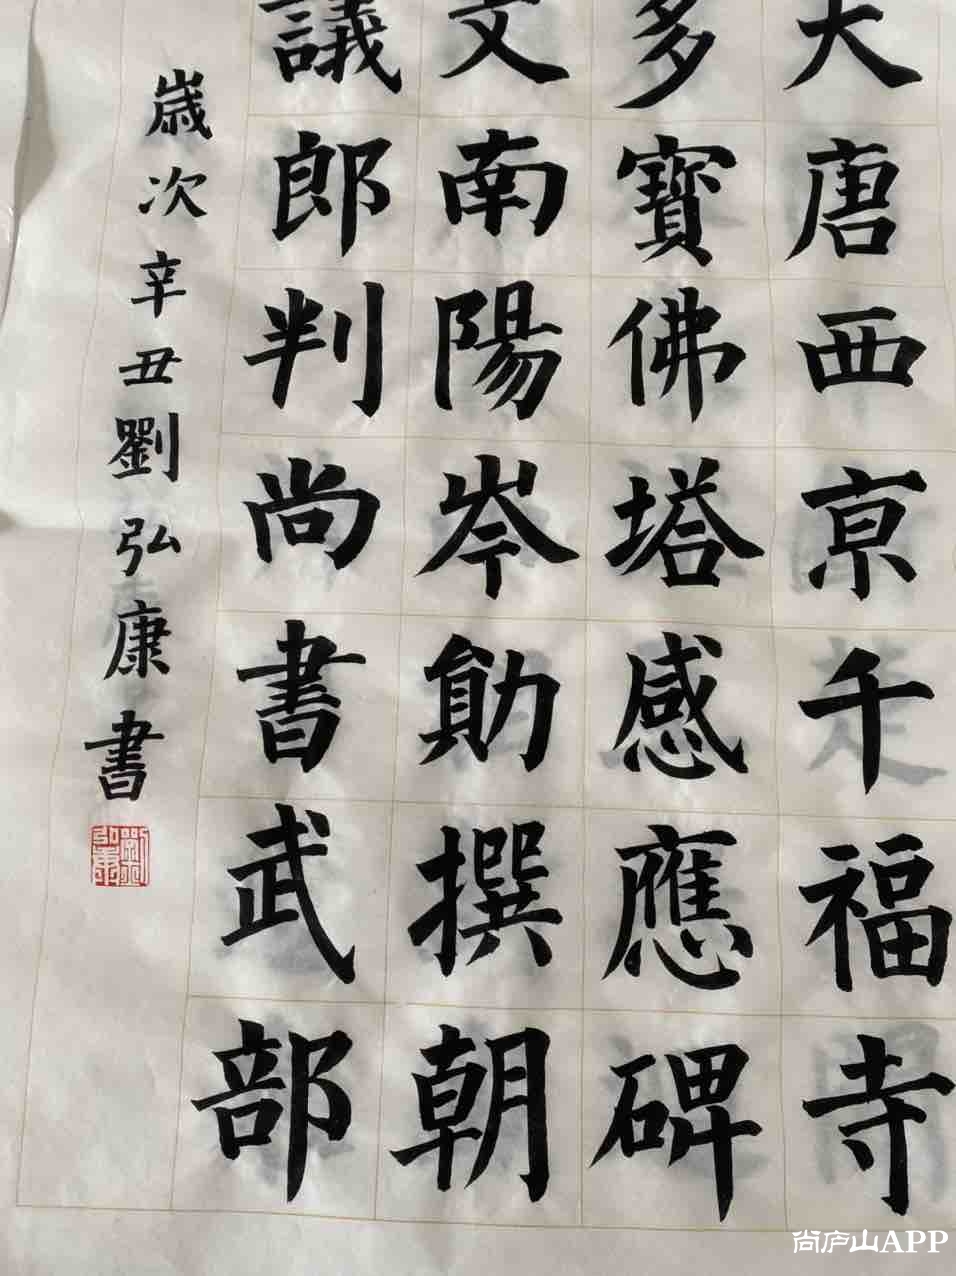 大唐西京千福寺
多寶佛塔感應碑
文南陽岑勛撰朝
議郎判尚書武部
歲次辛丑劉弘康書
劉弘康
尚庐山APP